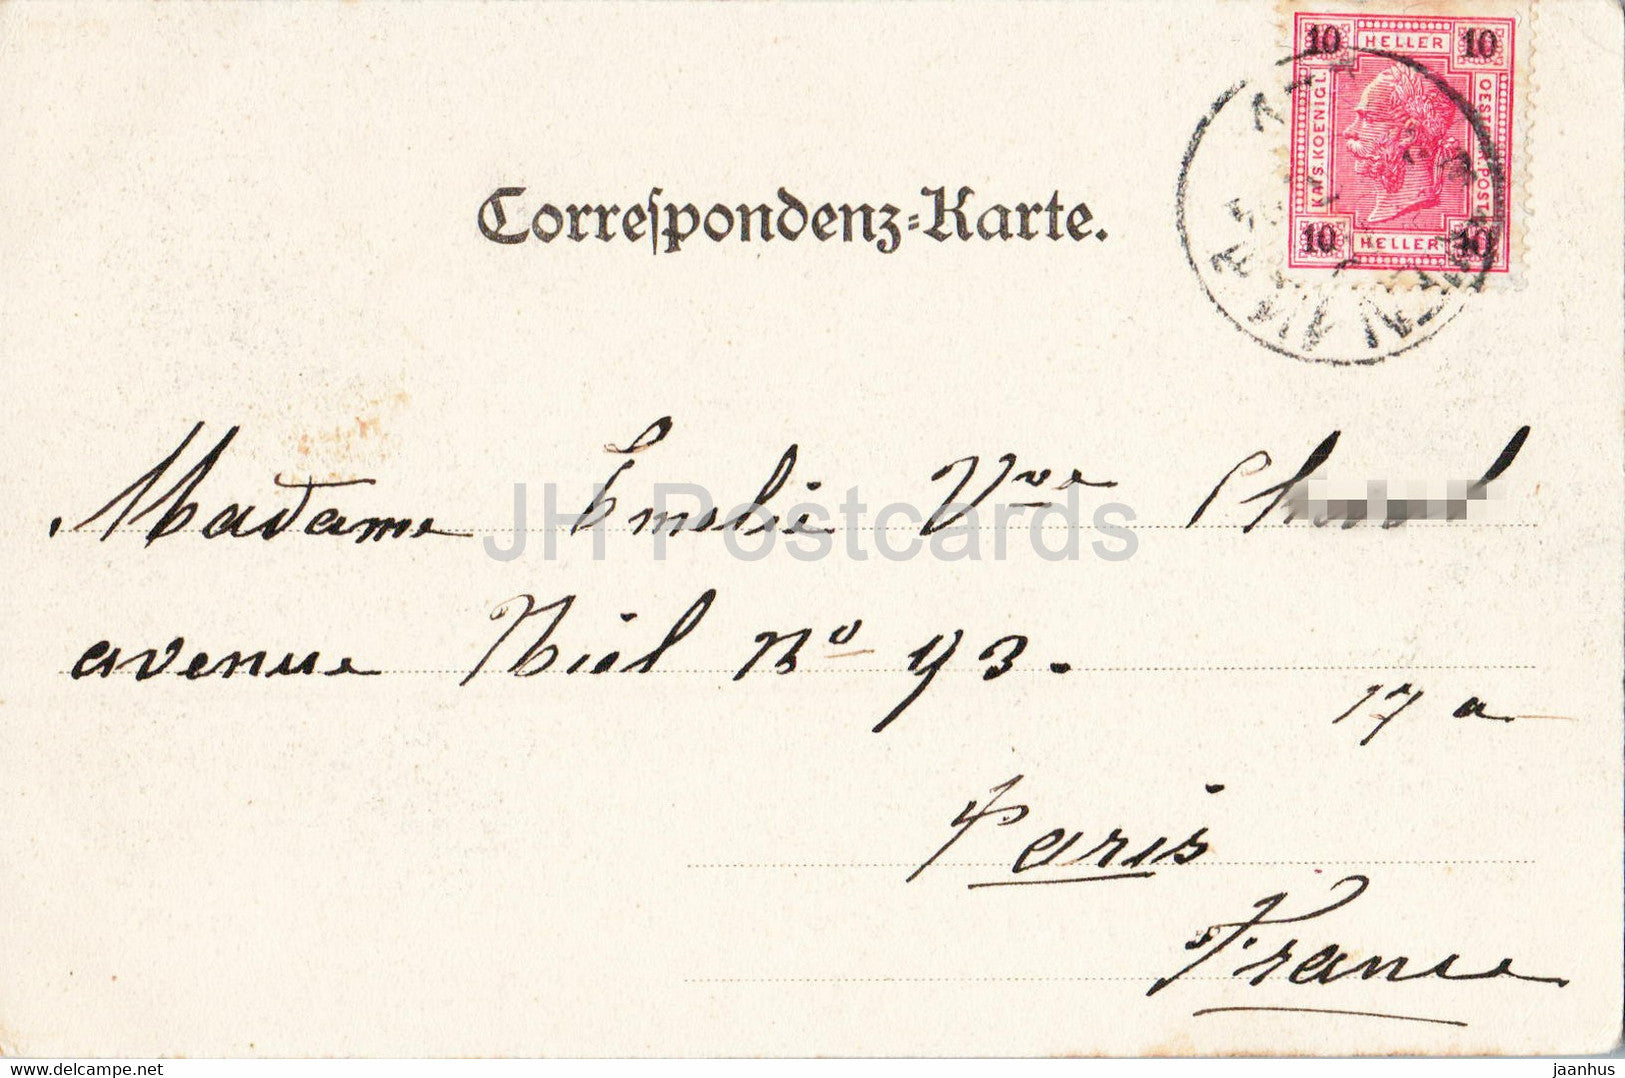 10 HELLER 10
KAIS. KOENIGL.
OESTERR. POST
10 HELLER 10
WIEN
Correſpondenz-Karte.
Madame Emelie Vve
JH Postcards
avenue Niel No 93.
17 a
Paris
France
delcampe.net
jaanhus